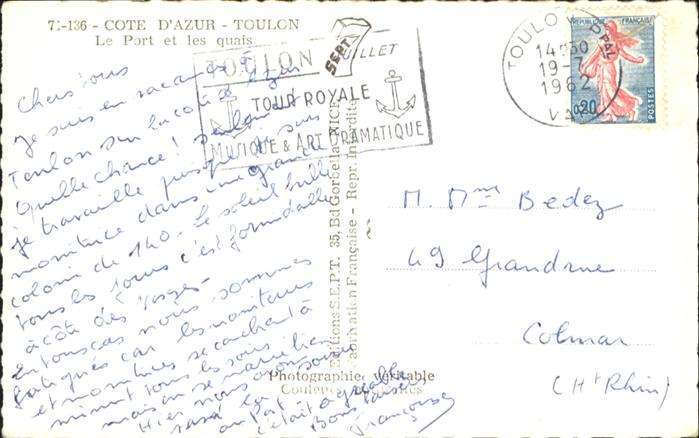 71-136 - COTE D'AZUR - TOULON
Le Port et les quais
TOULON
JUILLET
SEPT
TOUR ROYALE
MUSIQUE & ART DRAMATIQUE
TOULON PPAL
14H30
19-7
1962
VAR
REPUBLIQUE FRANÇAISE
0,20
POSTES
Chers tous
Je suis en vacances à
Toulon sur la côte d'Azur
Quelle chance! Pendant
je travaille jusque
monitrice dans une grande
colonie de 140 - le soleil brille
tous les jours c'est formidable
à côté des Vosges -
En tous cas nous sommes
fatigués car les moniteurs
et monitrices se couchent à
minuit tous les soirs
mais on se marre bien
Hier nous
au Port
c'était agréable
Bons baisers
Françoise
Editions S.E.P.T. 35, Bd Gorbella NICE
Fabrication Française - Repr. Interdite
Photographie véritable
M. Mme Bedez
49 Grandrue
Colmar
(Ht Rhin)